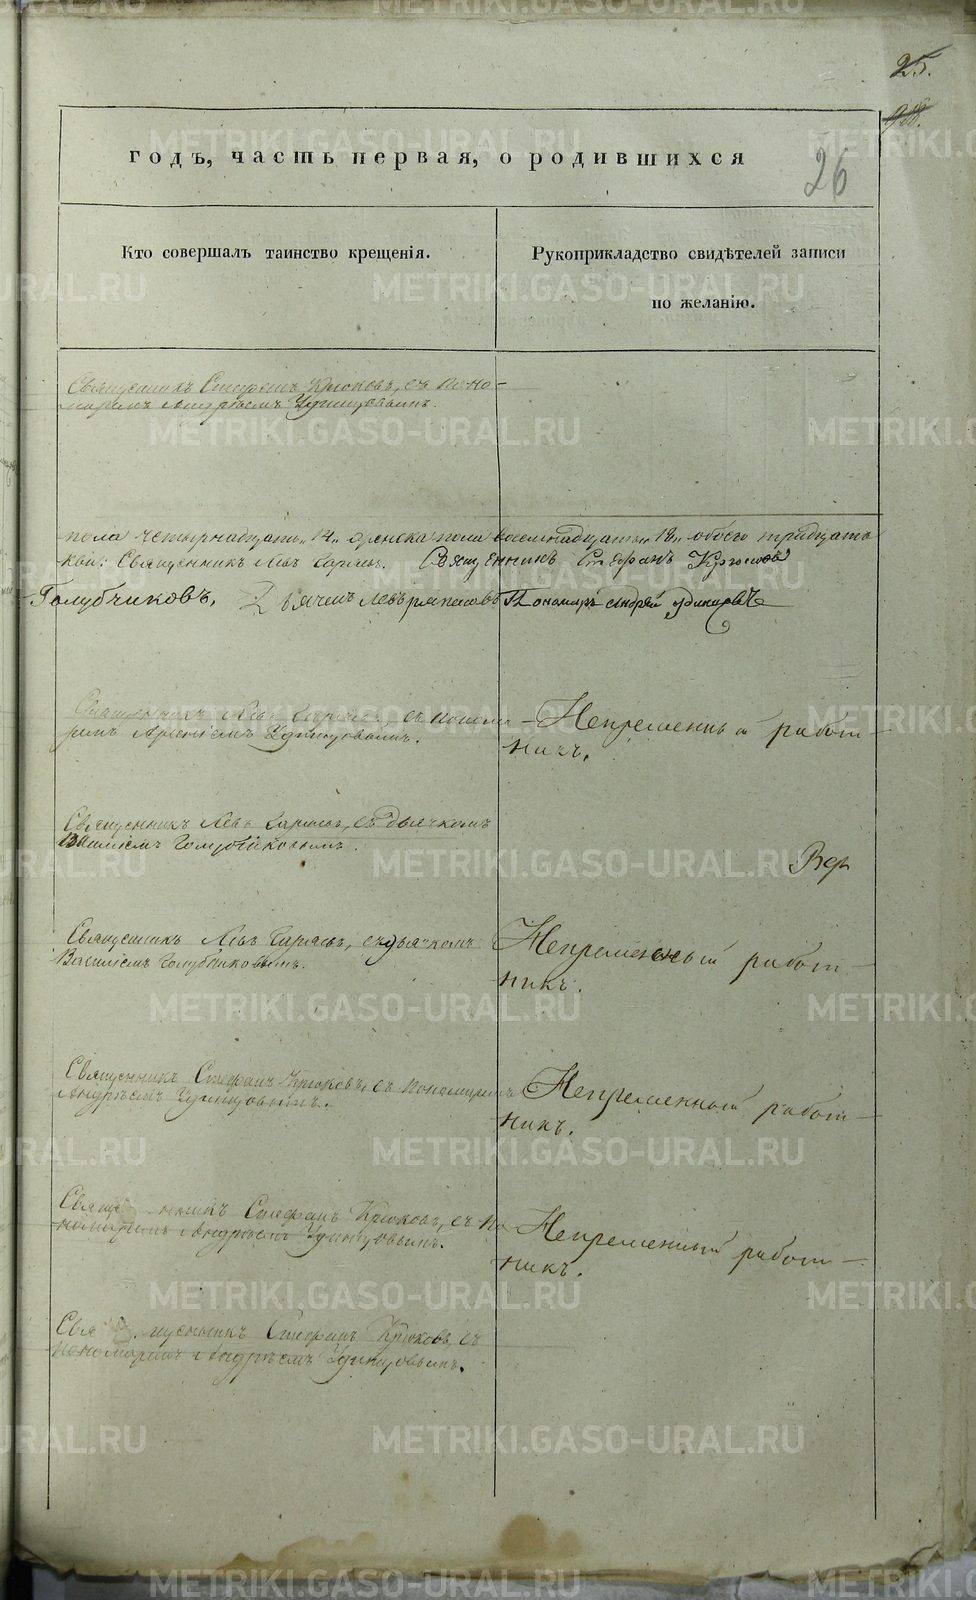 25.
26
годъ, часть первая, о родившихся
Кто совершалъ таинство крещенія.
Рукоприкладство свидѣтелей записи
по желанію.
Священникъ Стефанъ Крюковъ, съ поно-
маремъ Андреемъ Удинцовымъ.
пола четырнадцать „14„ женска пола восемнадцать „18„ обоего тридцать
Священникъ Левъ Священникъ Стефанъ Крюковъ
Голубчиковъ. Пономарь Андрей Удинцовъ
Священникъ Левъ съ понома-
ремъ Удинцовымъ.
Непременный работ-
никъ.
Священникъ Левъ съ дьячкомъ
Василіемъ Голубчиковымъ.
Священникъ Левъ съ дьячкомъ
Василіемъ Голубчиковымъ.
Непременный работ-
никъ.
Священникъ Стефанъ Крюковъ, съ пономаремъ
Андреемъ Удинцовымъ.
Непременный работ-
никъ.
Священникъ Стефанъ Крюковъ, съ по-
номаремъ Андреемъ Удинцовымъ.
Непременный работ-
никъ.
Священникъ Стефанъ Крюковъ, съ
пономаремъ Андреемъ Удинцовымъ.
METRIKI.GASO-URAL.RU